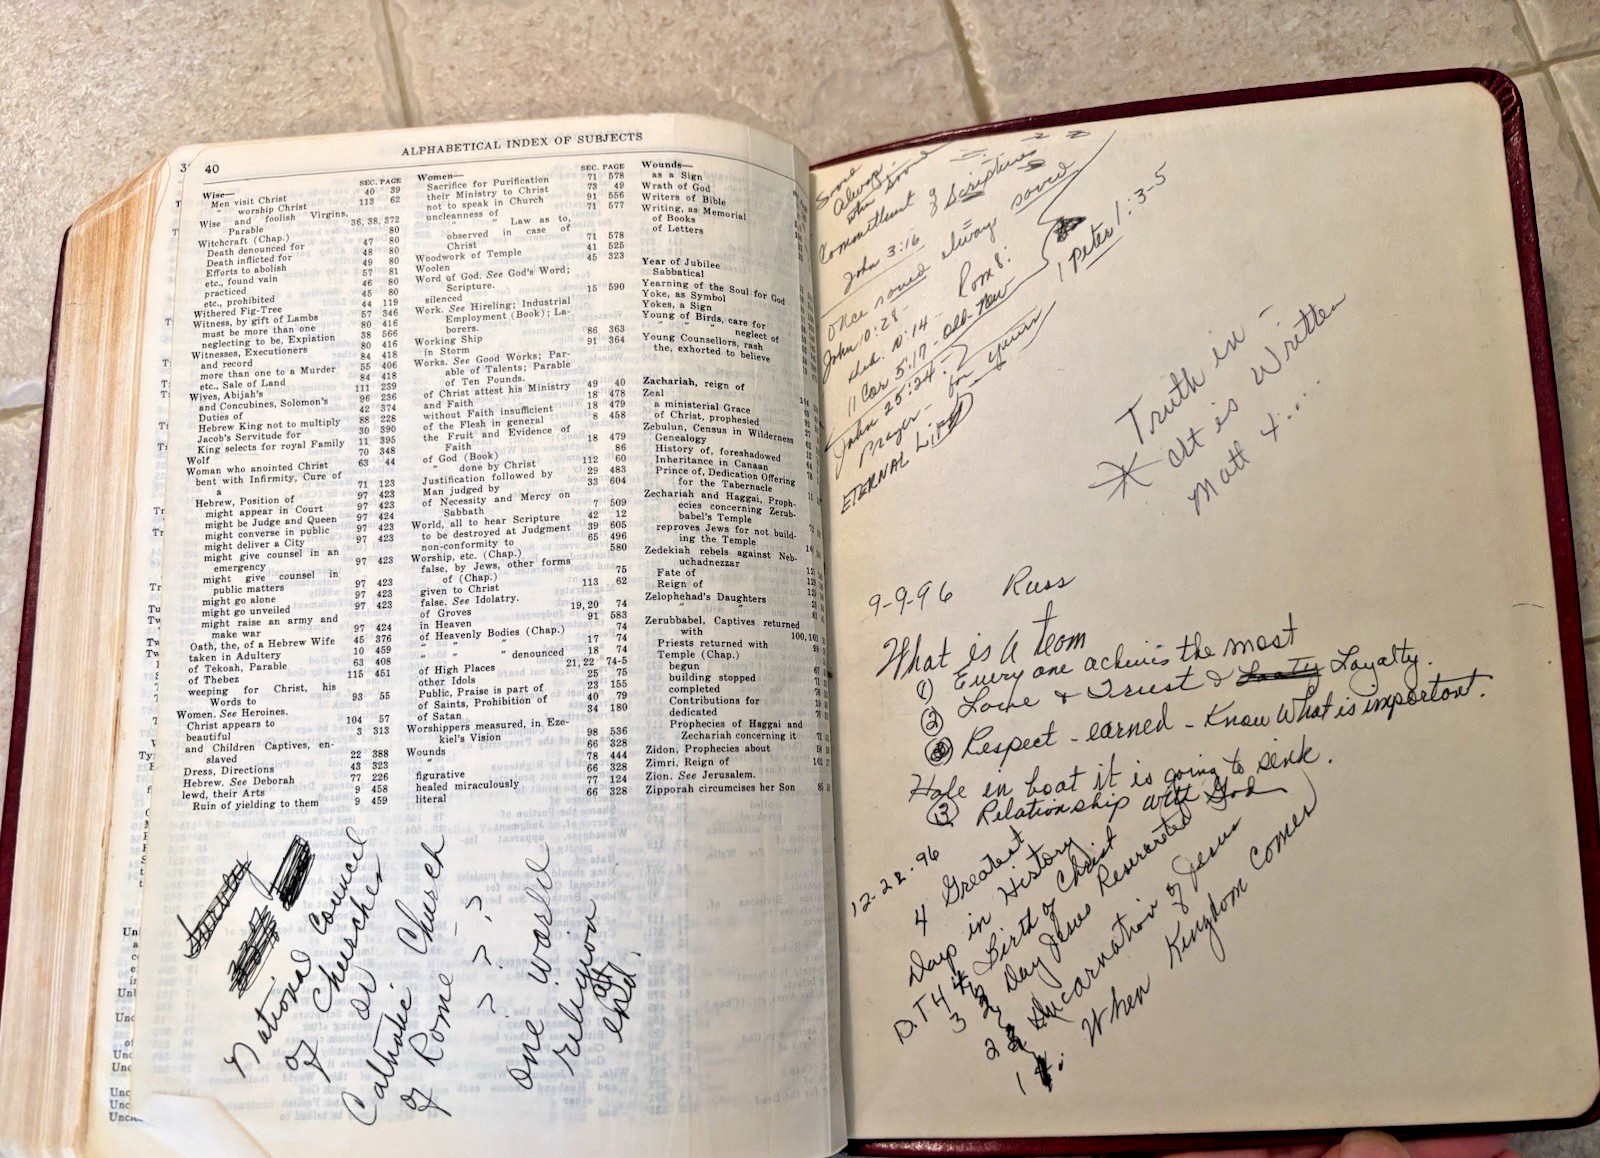 40
ALPHABETICAL INDEX OF SUBJECTS
SEC. PAGE
Wise—
Men visit Christ 40 39
" worship Christ 113 62
Wise and foolish Virgins,
Parable 36, 38, 372
Witchcraft (Chap.) 80
Death denounced for 47 80
Death inflicted for 48 80
Efforts to abolish 49 80
etc., found vain 57 81
practiced 46 80
etc., prohibited 45 80
Withered Fig-Tree 44 119
Witness, by gift of Lambs 57 346
must be more than one 80 416
neglecting to be, Expiation 38 566
Witnesses, Executioners 80 416
and record 84 418
more than one to a Murder 55 406
etc., Sale of Land 84 418
Wives, Abijah's 111 239
and Concubines, Solomon's 96 236
Duties of 42 374
Hebrew King not to multiply 88 228
Jacob's Servitude for 30 390
King selects for royal Family 11 395
Wolf 70 348
Woman who anointed Christ 63 44
bent with Infirmity, Cure of
a 71 123
Hebrew, Position of 97 423
might appear in Court 97 423
might be Judge and Queen 97 424
might converse in public 97 423
might deliver a City 97 423
might give counsel in an
emergency 97 423
might give counsel in
public matters 97 423
might go alone 97 423
might go unveiled 97 423
might raise an army and
make war 97 424
Oath, the, of a Hebrew Wife 45 376
taken in Adultery 10 459
of Tekoah, Parable 63 408
of Thebez 115 451
weeping for Christ, his
Words to 93 55
Women. See Heroines.
Christ appears to 104 57
beautiful 3 313
and Children Captives, en-
slaved 22 388
Dress, Directions 43 323
Hebrew. See Deborah 77 226
lewd, their Arts 9 458
Ruin of yielding to them 9 459
SEC. PAGE
Women—
Sacrifice for Purification 71 578
their Ministry to Christ 73 49
not to speak in Church 91 556
uncleanness of 71 577
" " Law as to,
observed in case of
Christ 71 578
Woodwork of Temple 41 525
Woolen 45 323
Word of God. See God's Word;
Scripture.
silenced 15 590
Work. See Hireling; Industrial
Employment (Book); La-
borers.
Working Ship 86 363
in Storm 91 364
Works. See Good Works; Par-
able of Talents; Parable
of Ten Pounds.
of Christ attest his Ministry 49 40
and Faith 18 478
without Faith insufficient 18 479
of the Flesh in general 8 458
the Fruit and Evidence of
Faith 18 479
of God (Book) 86
" done by Christ 112 60
Justification followed by 29 483
Man judged by 33 604
of Necessity and Mercy on
Sabbath 7 509
World, all to hear Scripture 42 12
to be destroyed at Judgment 39 605
non-conformity to 65 496
Worship, etc. (Chap.) 580
false, by Jews, other forms
of (Chap.) 75
given to Christ 113 62
false. See Idolatry.
of Groves 19, 20 74
in Heaven 91 583
of Heavenly Bodies (Chap.) 74
" " " 17 74
" " " denounced 18 74
of High Places 21, 22 74-5
other Idols 25 75
Public, Praise is part of 23 155
of Saints, Prohibition of 40 79
of Satan 34 180
Worshippers measured, in Eze-
kiel's Vision 98 536
Wounds 66 328
" 78 444
figurative 66 328
healed miraculously 77 124
literal 66 328
Wounds—
as a Sign
Wrath of God
Writers of Bible
Writing, as Memorial
of Books
of Letters
Year of Jubilee
Sabbatical
Yearning of the Soul for God
Yoke, as Symbol
Yokes, a Sign
Young of Birds, care for
" " " neglect of
Young Counsellors, rash
the, exhorted to believe
Zachariah, reign of
Zeal
a ministerial Grace
of Christ, prophesied
Zebulun, Census in Wilderness
Genealogy
History of, foreshadowed
Inheritance in Canaan
Prince of, Dedication Offering
for the Tabernacle
Zechariah and Haggai, Proph-
ecies concerning Zerub-
babel's Temple
reproves Jews for not build-
ing the Temple
Zedekiah rebels against Neb-
uchadnezzar
Fate of
Reign of
Zelophehad's Daughters
" "
Zerubbabel, Captives returned
with 100, 101
Priests returned with
Temple (Chap.)
begun
building stopped
completed
Contributions for
dedicated
Prophecies of Haggai and
Zechariah concerning it
Zidon, Prophecies about
Zimri, Reign of
Zion. See Jerusalem.
Zipporah circumcises her Son
National Council
of Churches
or
Catholic Church
of Rome
? ? ?
One world
religion
at
end.
Committment of Scriptures
John 3:16
Once saved always saved
John 10:28 - Rom 8:
Heb. 10:14 -
II Cor 5:17 - old - New
John 25:24 - ?
1 Peter 1:3-5
Prayer - for
ETERNAL Life
Truth in -
* art is Written
Matt 4...
9-9-96 Russ
What is a team
(1) Every one achieves the most
(2) Love & Trust & Loyalty.
Respect - earned - Know What is important.
Hole in boat it is going to sink.
(3) Relationship with God
12-28-96
4 Greatest
Days in History
D.T 4 Birth of Christ
3 2 Day Jesus Resurrected
2 Incarnation of Jesus
1 4. When Kingdom Comes